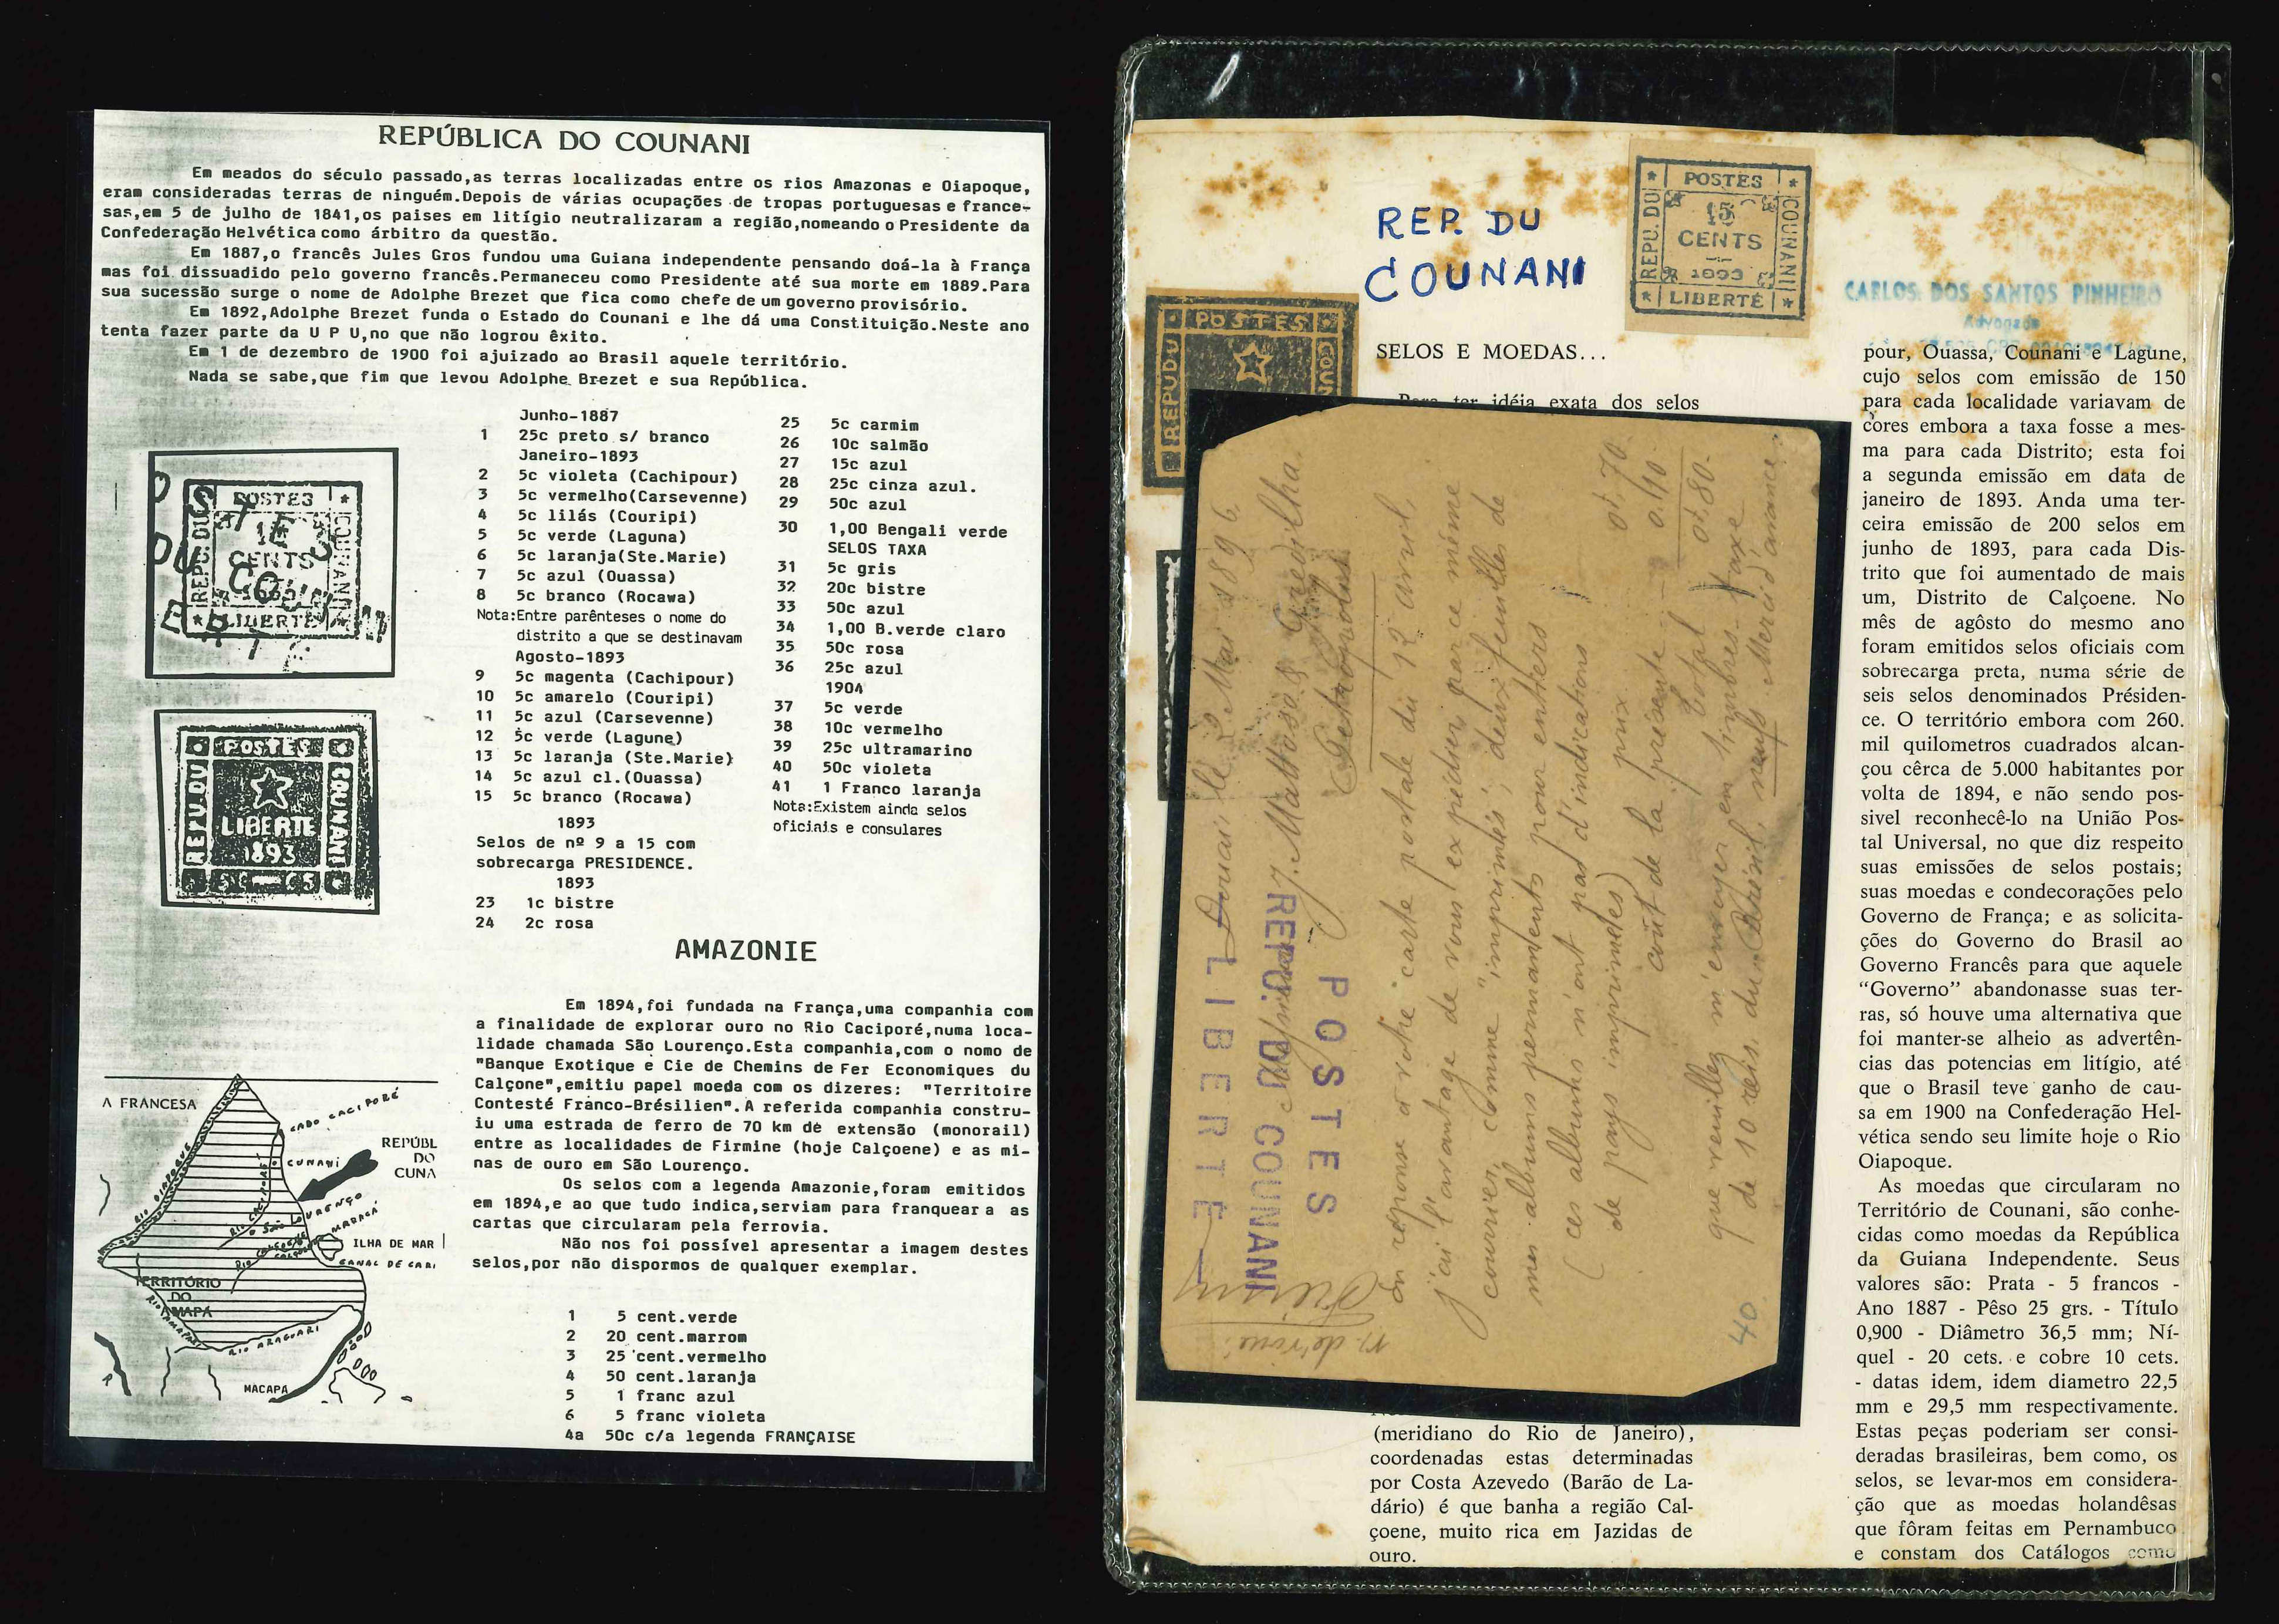 REPÚBLICA DO COUNANI
Em meados do século passado,as terras localizadas entre os rios Amazonas e Oiapoque,
eram consideradas terras de ninguém.Depois de várias ocupações de tropas portuguesas e france-
sas,em 5 de julho de 1841,os paises em litígio neutralizaram a região,nomeando o Presidente da
Confederação Helvética como árbitro da questão.
Em 1887,o francês Jules Gros fundou uma Guiana independente pensando doá-la à França
mas foi dissuadido pelo governo francês.Permaneceu como Presidente até sua morte em 1889.Para
sua sucessão surge o nome de Adolphe Brezet que fica como chefe de um governo provisório.
Em 1892,Adolphe Brezet funda o Estado do Counani e lhe dá uma Constituição.Neste ano
tenta fazer parte da U P U,no que não logrou êxito.
Em 1 de dezembro de 1900 foi ajuizado ao Brasil aquele território.
Nada se sabe,que fim que levou Adolphe Brezet e sua República.
Junho-1887
1 25c preto s/ branco
Janeiro-1893
2 5c violeta (Cachipour)
3 5c vermelho(Carsevenne)
4 5c lilás (Couripi)
5 5c verde (Laguna)
6 5c laranja(Ste.Marie)
7 5c azul (Ouassa)
8 5c branco (Rocawa)
Nota:Entre parênteses o nome do
distrito a que se destinavam
Agosto-1893
9 5c magenta (Cachipour)
10 5c amarelo (Couripi)
11 5c azul (Carsevenne)
12 5c verde (Lagune)
13 5c laranja (Ste.Marie)
14 5c azul cl.(Ouassa)
15 5c branco (Rocawa)
1893
Selos de nº 9 a 15 com
sobrecarga PRESIDENCE.
1893
23 1c bistre
24 2c rosa
25 5c carmim
26 10c salmão
27 15c azul
28 25c cinza azul.
29 50c azul
30 1,00 Bengali verde
SELOS TAXA
31 5c gris
32 20c bistre
33 50c azul
34 1,00 B.verde claro
35 50c rosa
36 25c azul
1904
37 5c verde
38 10c vermelho
39 25c ultramarino
40 50c violeta
41 1 Franco laranja
Nota:Existem ainda selos
oficiais e consulares
POSTES
REPU. DU
COUNANI
CENTS
LIBERTÉ
POSTES
REPU DU
COUNANI
LIBERTE
1893
AMAZONIE
Em 1894,foi fundada na França,uma companhia com
a finalidade de explorar ouro no Rio Caciporé,numa loca-
lidade chamada São Lourenço.Esta companhia,com o nome de
"Banque Exotique e Cie de Chemins de Fer Economiques du
Calçone",emitiu papel moeda com os dizeres: "Territoire
Contesté Franco-Brésilien".A referida companhia constru-
iu uma estrada de ferro de 70 km de extensão (monorail)
entre as localidades de Firmine (hoje Calçoene) e as mi-
nas de ouro em São Lourenço.
Os selos com a legenda Amazonie,foram emitidos
em 1894,e ao que tudo indica,serviam para franquear a as
cartas que circularam pela ferrovia.
Não nos foi possível apresentar a imagem destes
selos,por não dispormos de qualquer exemplar.
1 5 cent.verde
2 20 cent.marrom
3 25 cent.vermelho
4 50 cent.laranja
5 1 franc azul
6 5 franc violeta
4a 50c c/a legenda FRANÇAISE
A FRANCESA
CABO CACIPORÉ
RIO OIAPOQUE
REPÚBL
DO
CUNA
CUNANÍ
SÃO LOURENÇO
MARACÁ
ILHA DE MAR
CANAL DE CARI
TERRITÓRIO
DO
AMAPÁ
RIO ARAGUARI
MACAPÁ
REP. DU
COUNANI
POSTES
REPU. DU
COUNANI
15
CENTS
1893
LIBERTÉ
CARLOS DOS SANTOS PINHEIRO
Advogado
POSTES
REPUDU
COUN
SELOS E MOEDAS...
Para ter idéia exata dos selos
Douai le 2 Mai 1896
en réponse à votre carte postale du 12 avril,
j'ai l'avantage de vous expédier par ce même
courrier, comme "imprimés", deux feuilles de
mes albums permanents pour entiers
(ces albums n'ont pas d'indications
de pays imprimées) prix 0f.70
coût de la présente — 0.10
total 0f.80
que veuillez m'envoyer en timbres-taxe
de 10 reis du Brésil, neufs Merci d'avance
40
LIBERTÉ
REPU. DU COUNANI
POSTES
(meridiano do Rio de Janeiro),
coordenadas estas determinadas
por Costa Azevedo (Barão de La-
dário) é que banha a região Cal-
çoene, muito rica em Jazidas de
ouro.
pour, Ouassa, Counani e Lagune,
cujo selos com emissão de 150
para cada localidade variavam de
cores embora a taxa fosse a mes-
ma para cada Distrito; esta foi
a segunda emissão em data de
janeiro de 1893. Anda uma ter-
ceira emissão de 200 selos em
junho de 1893, para cada Dis-
trito que foi aumentado de mais
um, Distrito de Calçoene. No
mês de agôsto do mesmo ano
foram emitidos selos oficiais com
sobrecarga preta, numa série de
seis selos denominados Présiden-
ce. O território embora com 260.
mil quilometros cuadrados alcan-
çou cêrca de 5.000 habitantes por
volta de 1894, e não sendo pos-
sivel reconhecê-lo na União Pos-
tal Universal, no que diz respeito
suas emissões de selos postais;
suas moedas e condecorações pelo
Governo de França; e as solicita-
ções do Governo do Brasil ao
Governo Francês para que aquele
“Governo” abandonasse suas ter-
ras, só houve uma alternativa que
foi manter-se alheio as advertên-
cias das potencias em litígio, até
que o Brasil teve ganho de cau-
sa em 1900 na Confederação Hel-
vética sendo seu limite hoje o Rio
Oiapoque.
As moedas que circularam no
Território de Counani, são conhe-
cidas como moedas da República
da Guiana Independente. Seus
valores são: Prata - 5 francos -
Ano 1887 - Pêso 25 grs. - Título
0,900 - Diâmetro 36,5 mm; Ní-
quel - 20 cets. e cobre 10 cets.
- datas idem, idem diametro 22,5
mm e 29,5 mm respectivamente.
Estas peças poderiam ser consi-
deradas brasileiras, bem como, os
selos, se levar-mos em considera-
ção que as moedas holandêsas
que fôram feitas em Pernambuco
e constam dos Catálogos como